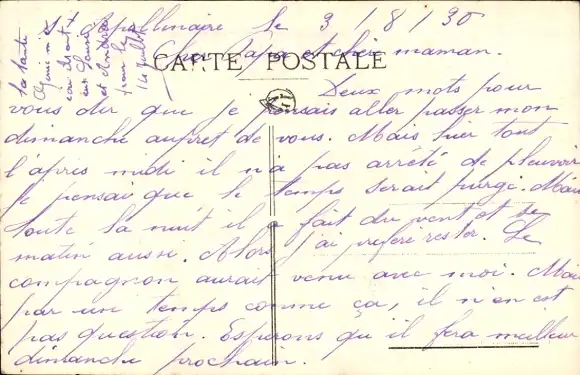 Apollinaire le 3/8/30
Cher Papa et chère maman.
CARTE POSTALE
Deux mots pour
vous dir que je pensais aller passer mon
dimanche aupret de vous. Mais hier tout
l'après midi il n'a pas arrêté de pleuvoir
Je pensai que le temps serait purgé. Mais
toute la nuit il a fait du vent et se
matin aussi. Alors j'ai préféré rester. Le
compagnon aurait venu avec moi. Mais
par un temps comme ça, il n'en est
pas question. Espérons qu'il fera meilleur
dimanche prochain.
la tante
14 juillet